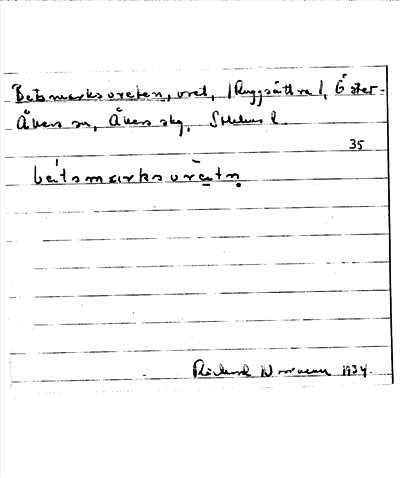 Betsmarksvreten, vret, (Ruggsättra), Öster-
Åkers sn, Åkers skg, Sthlms l.
35
bètsmarksvrètn
Rickard Norman 1934.